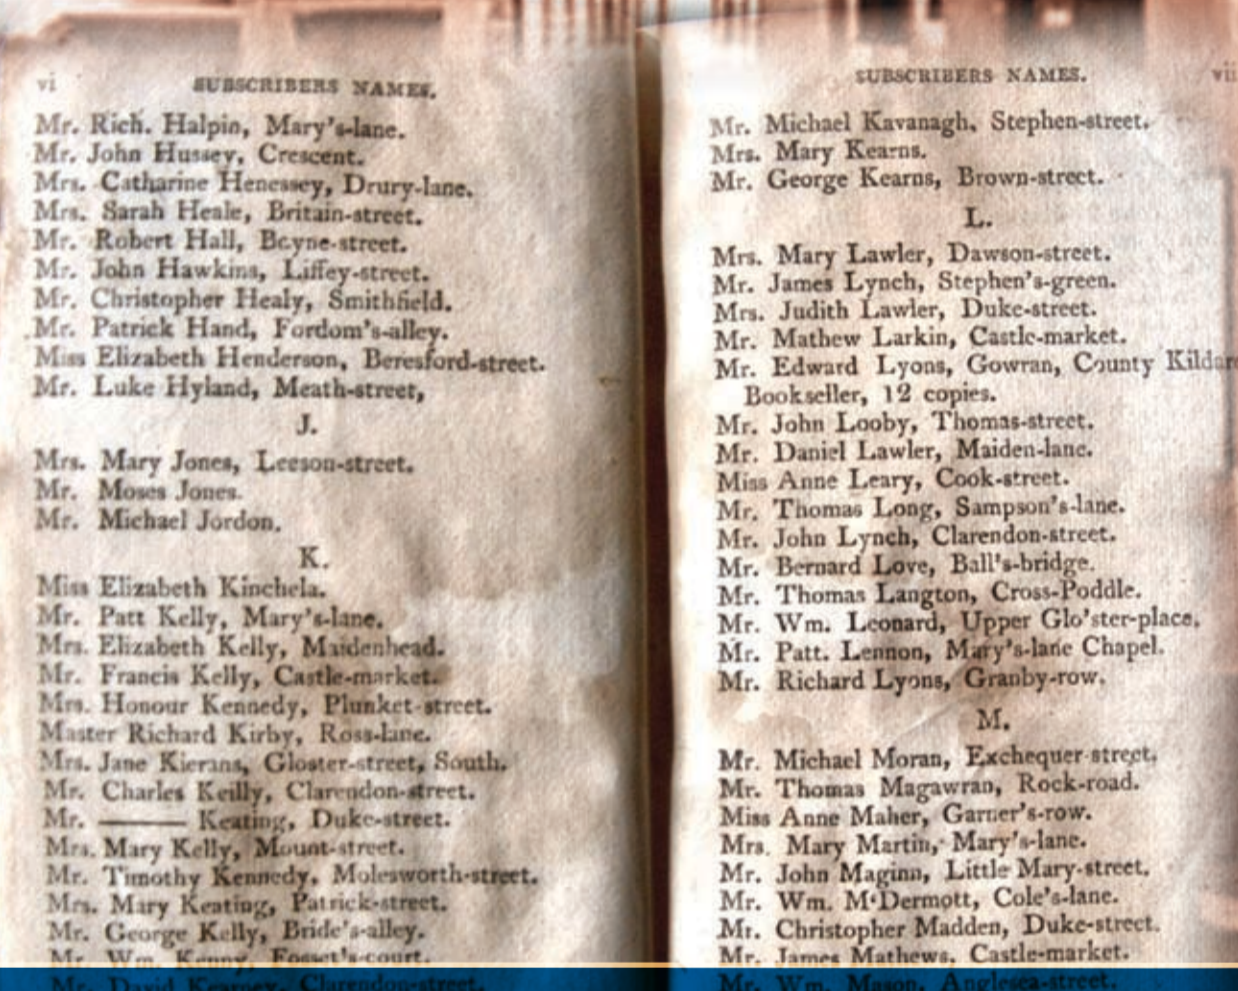 vi
SUBSCRIBERS NAMES.
Mr. Rich. Halpin, Mary's-lane.
Mr. John Hussey, Crescent.
Mrs. Catharine Henessey, Drury-lane.
Mrs. Sarah Heale, Britain-street.
Mr. Robert Hall, Boyne-street.
Mr. John Hawkins, Liffey-street.
Mr. Christopher Healy, Smithfield.
Mr. Patrick Hand, Fordom's-alley.
Miss Elizabeth Henderson, Beresford-street.
Mr. Luke Hyland, Meath-street,
J.
Mrs. Mary Jones, Leeson-street.
Mr. Moses Jones.
Mr. Michael Jordon.
K.
Miss Elizabeth Kinchela.
Mr. Patt Kelly, Mary's-lane.
Mrs. Elizabeth Kelly, Maidenhead.
Mr. Francis Kelly, Castle-market.
Mrs. Honour Kennedy, Plunket-street.
Master Richard Kirby, Ross-lane.
Mrs. Jane Kierans, Gloster-street, South.
Mr. Charles Keilly, Clarendon-street.
Mr. ——— Keating, Duke-street.
Mrs. Mary Kelly, Mount-street.
Mr. Timothy Kennedy, Molesworth-street.
Mrs. Mary Keating, Patrick-street.
Mr. George Kelly, Bride's-alley.
Mr. Wm. Kenny, Fosset's-court.
Mr. David Kearney, Clarendon-street.
SUBSCRIBERS NAMES.
vii
Mr. Michael Kavanagh, Stephen-street.
Mrs. Mary Kearns.
Mr. George Kearns, Brown-street.
L.
Mrs. Mary Lawler, Dawson-street.
Mr. James Lynch, Stephen's-green.
Mrs. Judith Lawler, Duke-street.
Mr. Mathew Larkin, Castle-market.
Mr. Edward Lyons, Gowran, County Kildar
Bookseller, 12 copies.
Mr. John Looby, Thomas-street.
Mr. Daniel Lawler, Maiden-lane.
Miss Anne Leary, Cook-street.
Mr. Thomas Long, Sampson's-lane.
Mr. John Lynch, Clarendon-street.
Mr. Bernard Love, Ball's-bridge.
Mr. Thomas Langton, Cross-Poddle.
Mr. Wm. Leonard, Upper Glo'ster-place.
Mr. Patt. Lennon, Mary's-lane Chapel.
Mr. Richard Lyons, Granby-row.
M.
Mr. Michael Moran, Exchequer-street.
Mr. Thomas Magawran, Rock-road.
Miss Anne Maher, Garner's-row.
Mrs. Mary Martin, Mary's-lane.
Mr. John Maginn, Little Mary-street.
Mr. Wm. M'Dermott, Cole's-lane.
Mr. Christopher Madden, Duke-street.
Mr. James Mathews, Castle-market.
Mr. Wm. Mason, Anglesea-street.